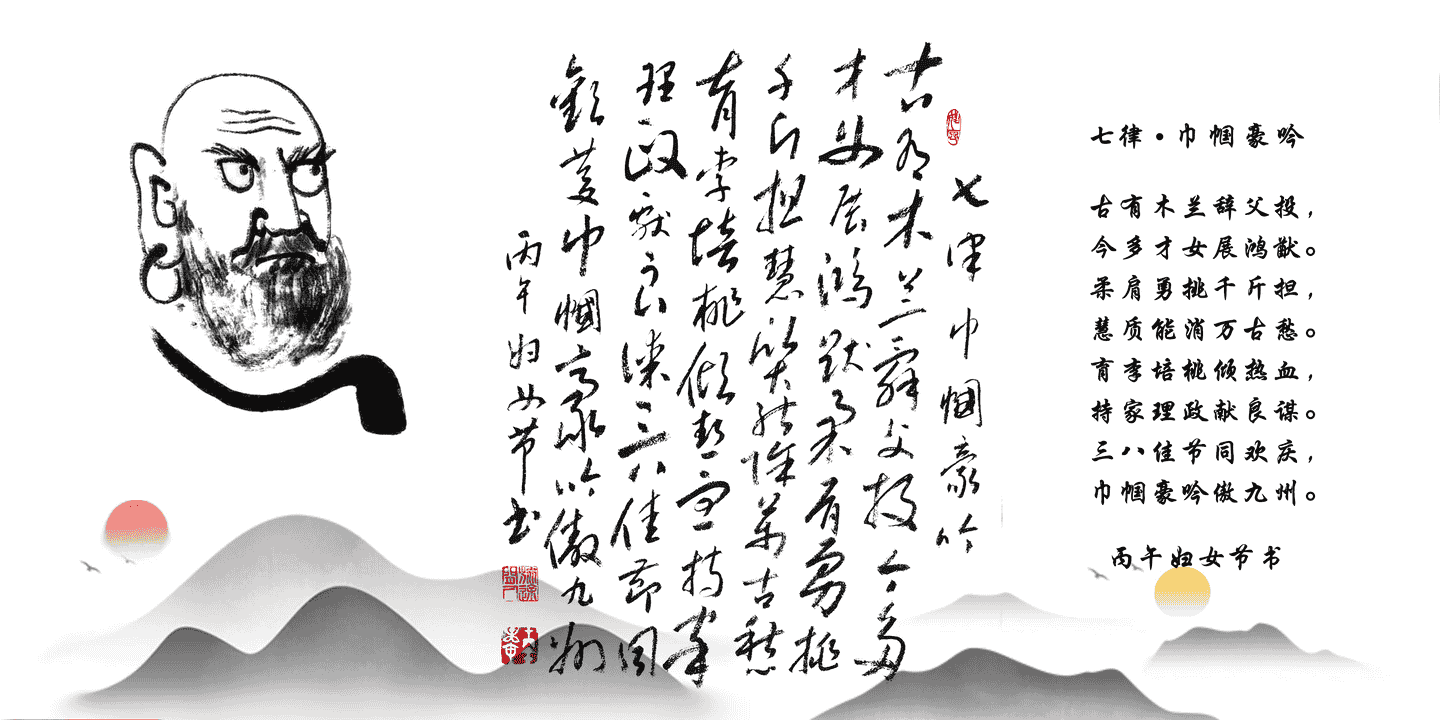 七律巾帼豪吟
古有木兰辞父投今多
才女展鸿猷柔肩勇挑
千斤担慧质能除萬古愁
育李培桃倾热血持家
理政献良谋三八佳節同
歡慶巾帼豪吟傲九州
丙午妇女节书
七律·巾帼豪吟
古有木兰辞父投，
今多才女展鸿猷。
柔肩勇挑千斤担，
慧质能消万古愁。
育李培桃倾热血，
持家理政献良谋。
三八佳节同欢庆，
巾帼豪吟傲九州。
丙午妇女节书